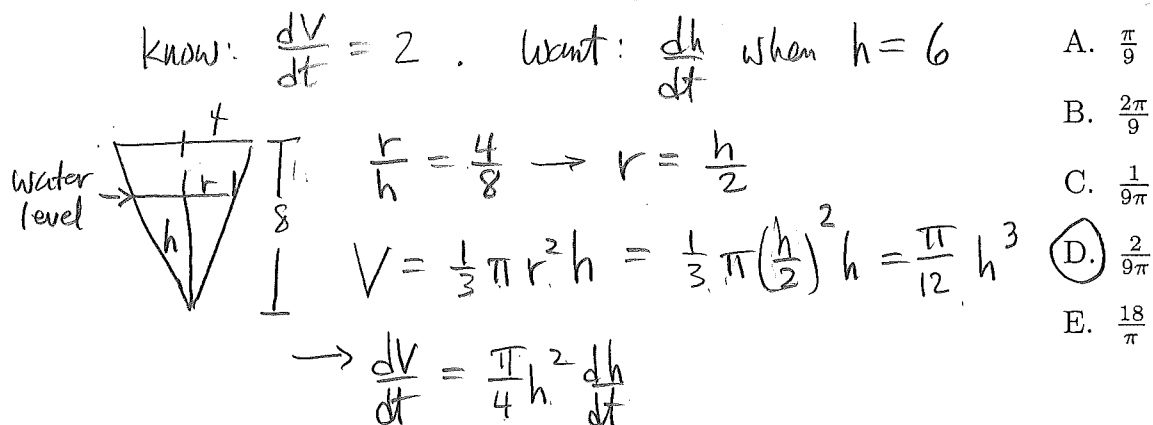 know: dV/dt = 2 . Want: dh/dt when h = 6
4
water level
r
h
8
r/h = 4/8 → r = h/2
V = 1/3 π r² h = 1/3 π (h/2)² h = π/12 h³
→ dV/dt = π/4 h² dh/dt
A. π/9
B. 2π/9
C. 1/9π
D. 2/9π
E. 18/π